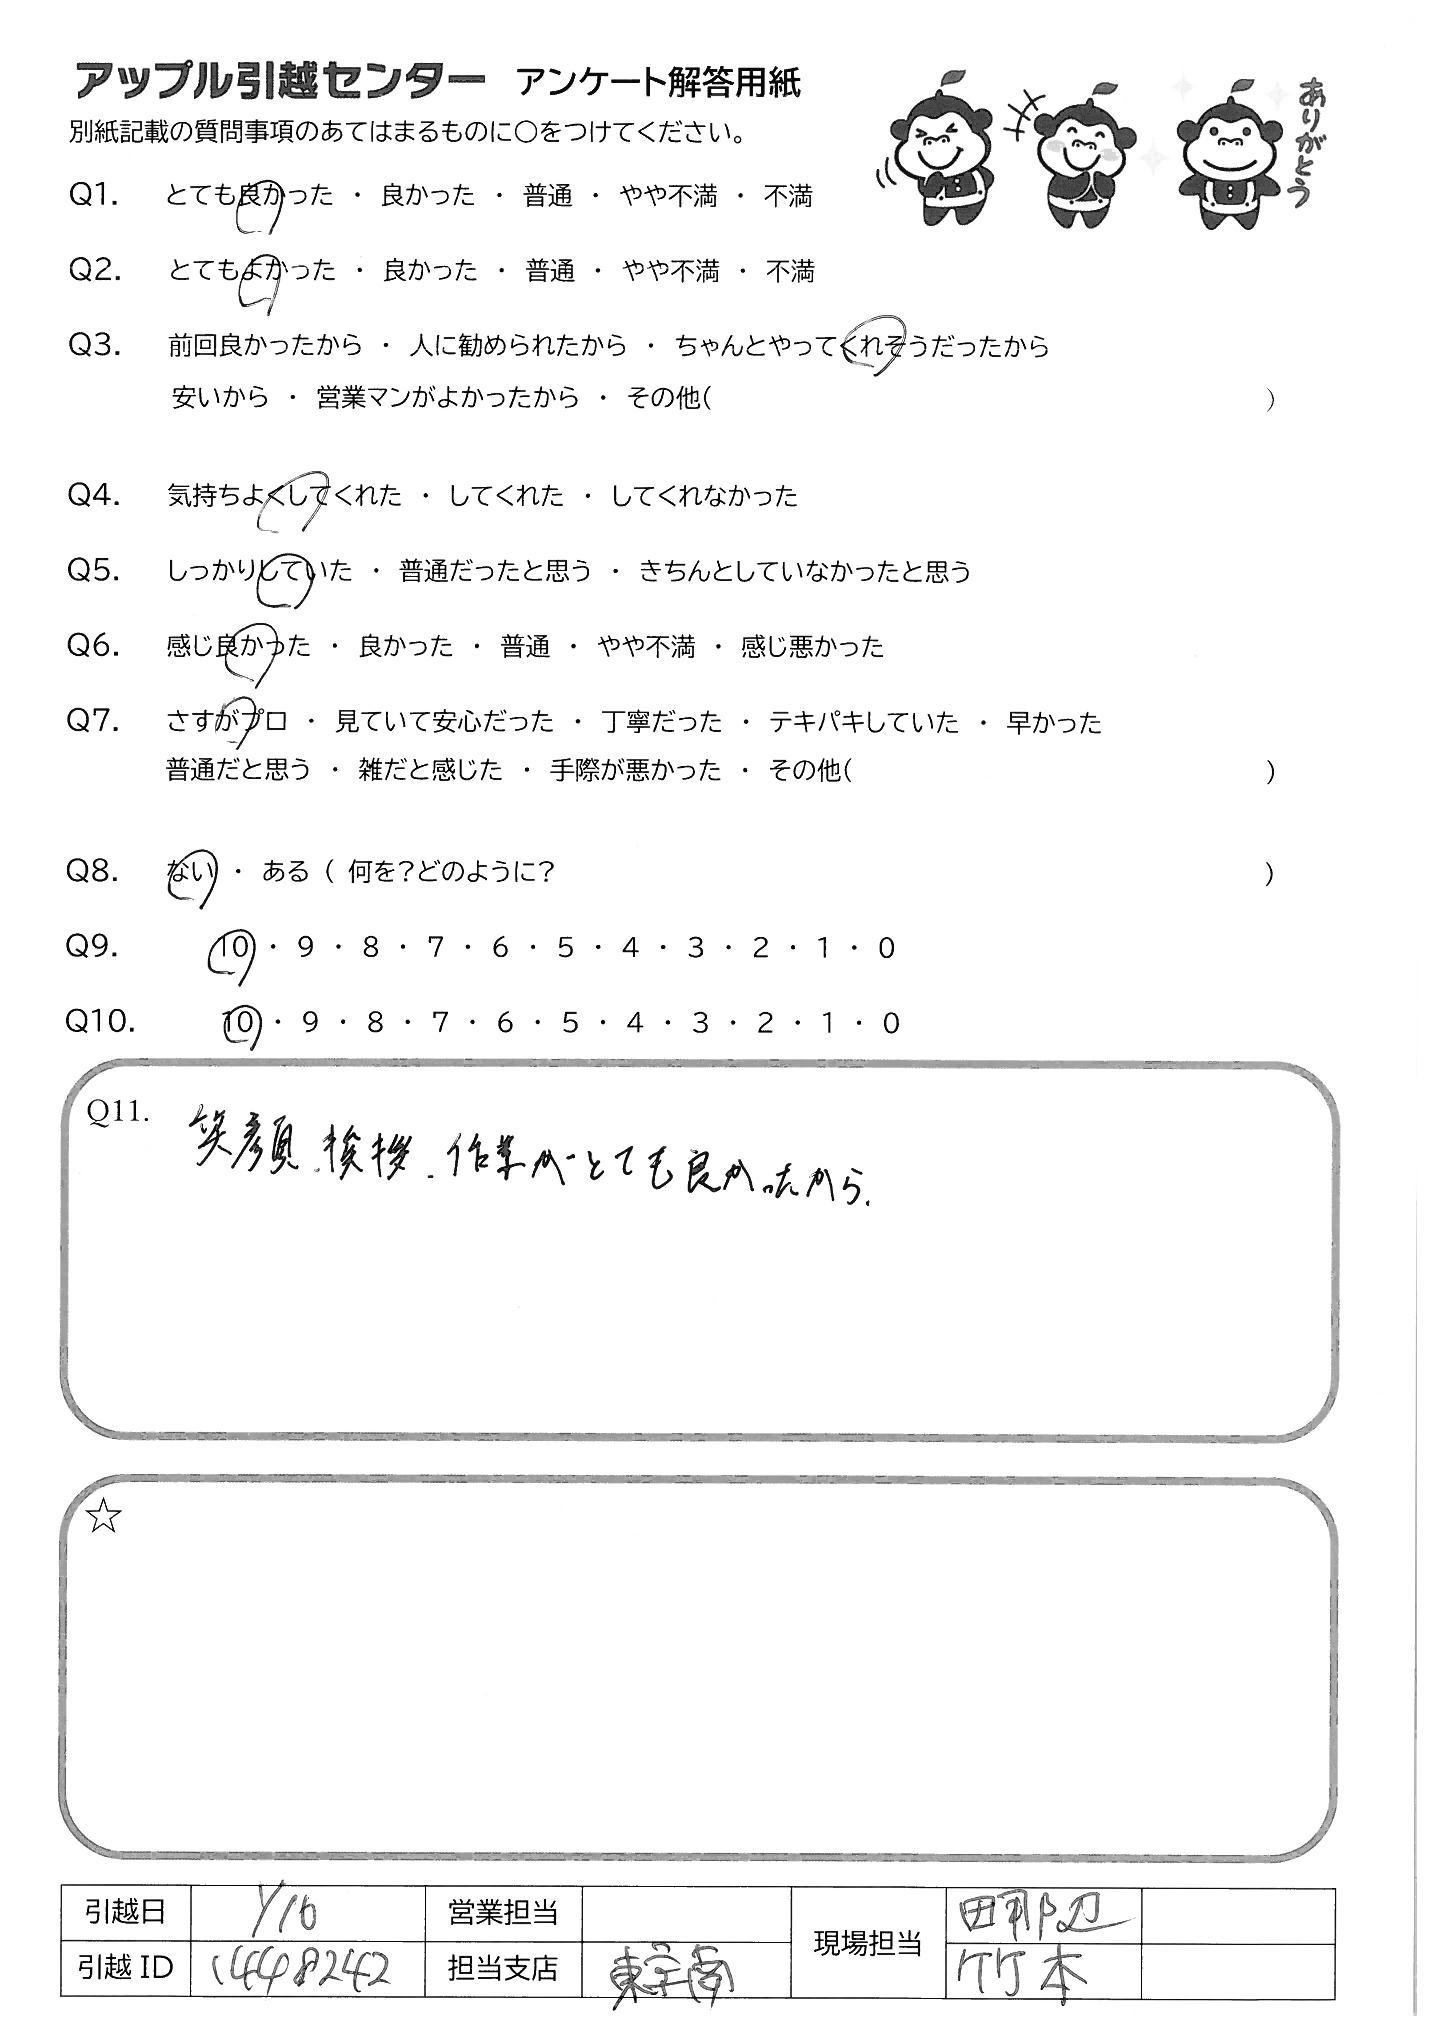 アップル引越センター アンケート解答用紙
別紙記載の質問事項のあてはまるものに○をつけてください。
ありがとう
Q1. とても良かった ・ 良かった ・ 普通 ・ やや不満 ・ 不満
Q2. とてもよかった ・ 良かった ・ 普通 ・ やや不満 ・ 不満
Q3. 前回良かったから ・ 人に勧められたから ・ ちゃんとやってくれそうだったから
安いから ・ 営業マンがよかったから ・ その他( )
Q4. 気持ちよくしてくれた ・ してくれた ・ してくれなかった
Q5. しっかりしていた ・ 普通だったと思う ・ きちんとしていなかったと思う
Q6. 感じ良かった ・ 良かった ・ 普通 ・ やや不満 ・ 感じ悪かった
Q7. さすがプロ ・ 見ていて安心だった ・ 丁寧だった ・ テキパキしていた ・ 早かった
普通だと思う ・ 雑だと感じた ・ 手際が悪かった ・ その他( )
Q8. ない ・ ある ( 何を?どのように? )
Q9. 10 ・ 9 ・ 8 ・ 7 ・ 6 ・ 5 ・ 4 ・ 3 ・ 2 ・ 1 ・ 0
Q10. 10 ・ 9 ・ 8 ・ 7 ・ 6 ・ 5 ・ 4 ・ 3 ・ 2 ・ 1 ・ 0
Q11. 笑顔、挨拶、作業がとても良かったから.
☆
引越日 1/16 営業担当 現場担当 田那辺
引越ID 14448242 担当支店 竹本